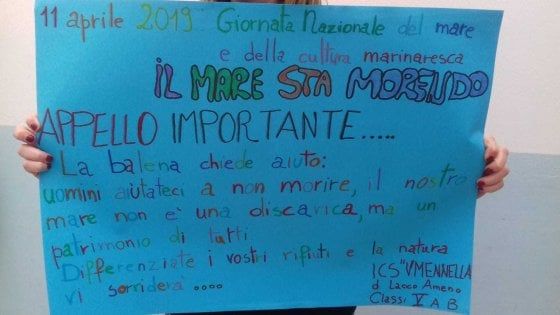 11 aprile 2019 Giornata Nazionale del mare
e della cultura marinaresca
IL MARE STA MORENDO
APPELLO IMPORTANTE.....
La balena chiede aiuto:
uomini aiutateci a non morire, il nostro
mare non è una discarica, ma un
patrimonio di tutti
Differenziate i vostri rifiuti e la natura
vi sorriderà ....
ICS "V MENNELLA
di Lacco Ameno
Classi V A B